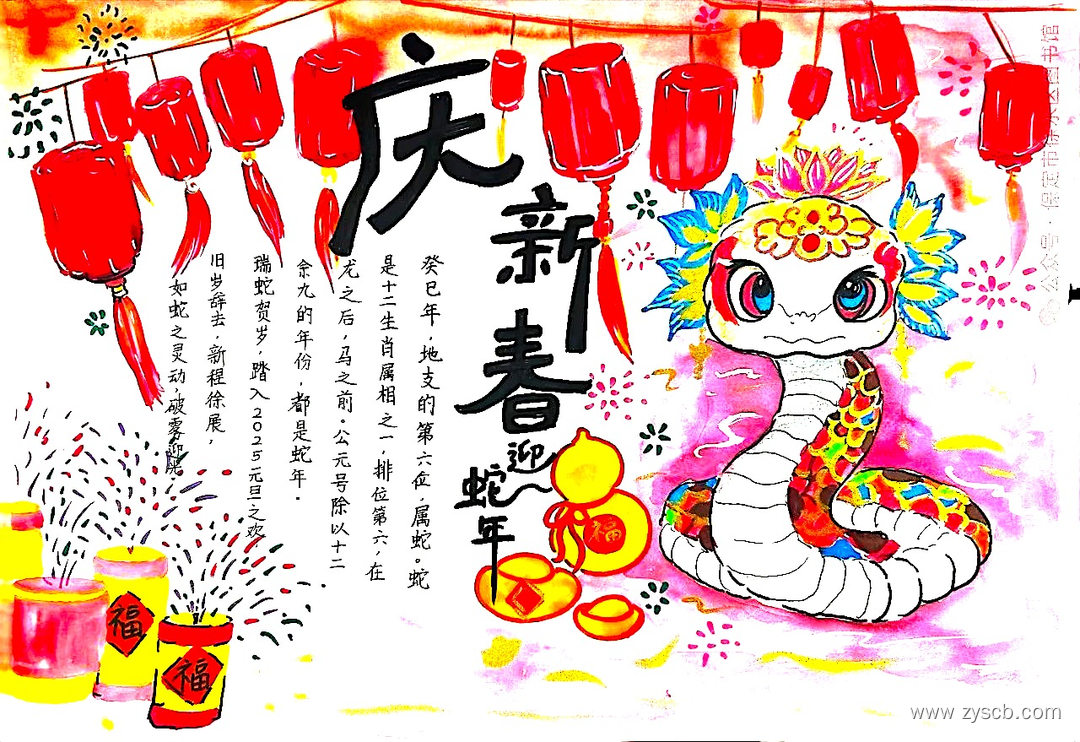 庆
新
春
迎
蛇
年
癸巳年，地支的第六位，属蛇。蛇
是十二生肖属相之一，排位第六，在
龙之后，马之前。公元号除以十二
余九的年份，都是蛇年。
瑞蛇贺岁，踏入2025元旦之欢
旧岁辞去，新程徐展，
如蛇之灵动，破雾迎
福
福
福
公众号·保定市徐水区图书馆
www.zyscb.com